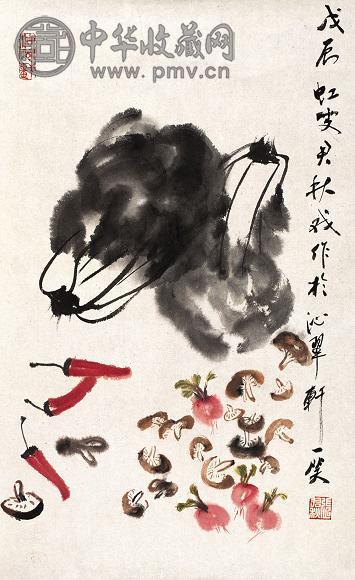 中华收藏网
www.pmv.cn
戊辰虹叟君秋戏作於沁翠轩一笑